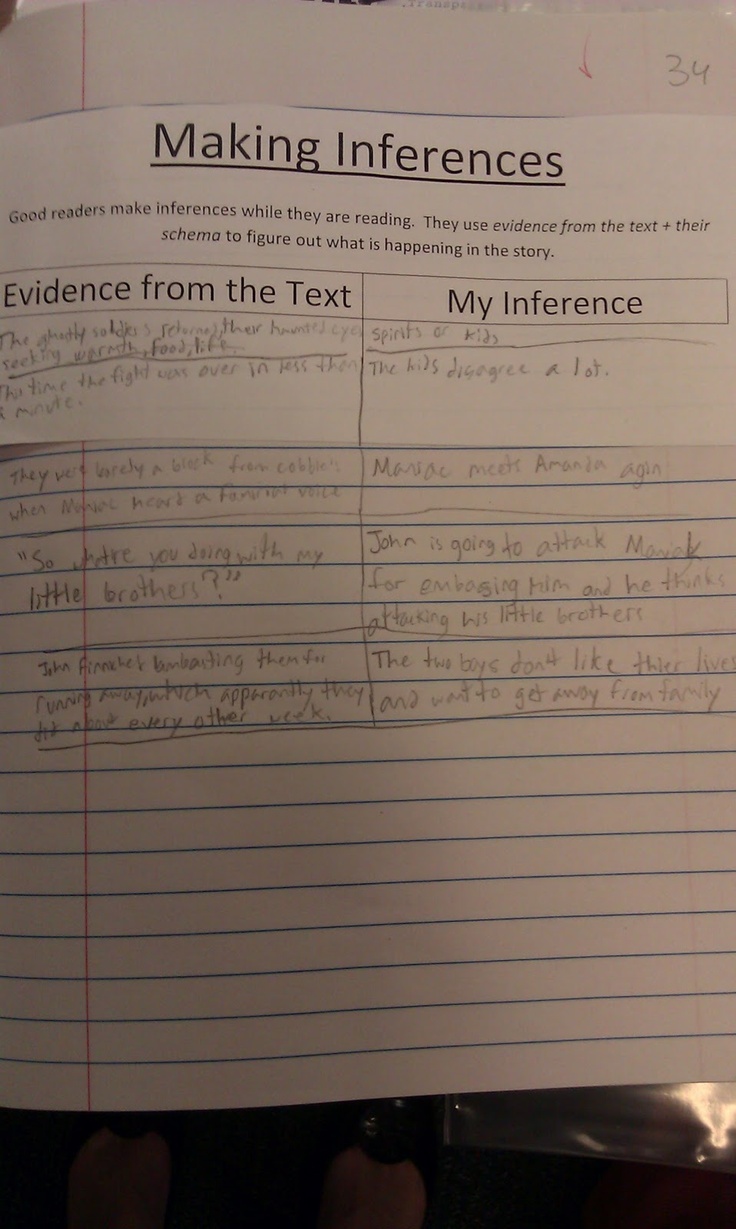 34
Making Inferences
Good readers make inferences while they are reading. They use evidence from the text + their
schema to figure out what is happening in the story.
Evidence from the Text
My Inference
The ghostly soldiers returned, their haunted eyes
seeking warmth, food, life.
spirits or kids
This time the fight was over in less than
a minute.
The kids disagree a lot.
They were barely a block from cobble's
when Maniac heart a familiar voice
Maniac meets Amanda agin
"So whatre you doing with my
little brothers?"
John is going to attack Maniak
for embasing him and he thinks
attacking his little brothers
John lambasting them for
running away, which apparantly they
did about every other week.
The two boys don't like thier lives
and want to get away from family